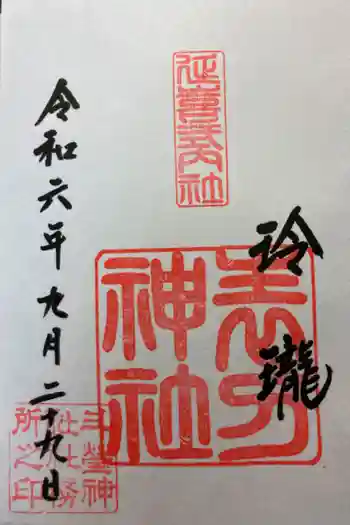 延喜式内社
玲瓏
神社
令和六年九月二十九日
神
社社務
所之印